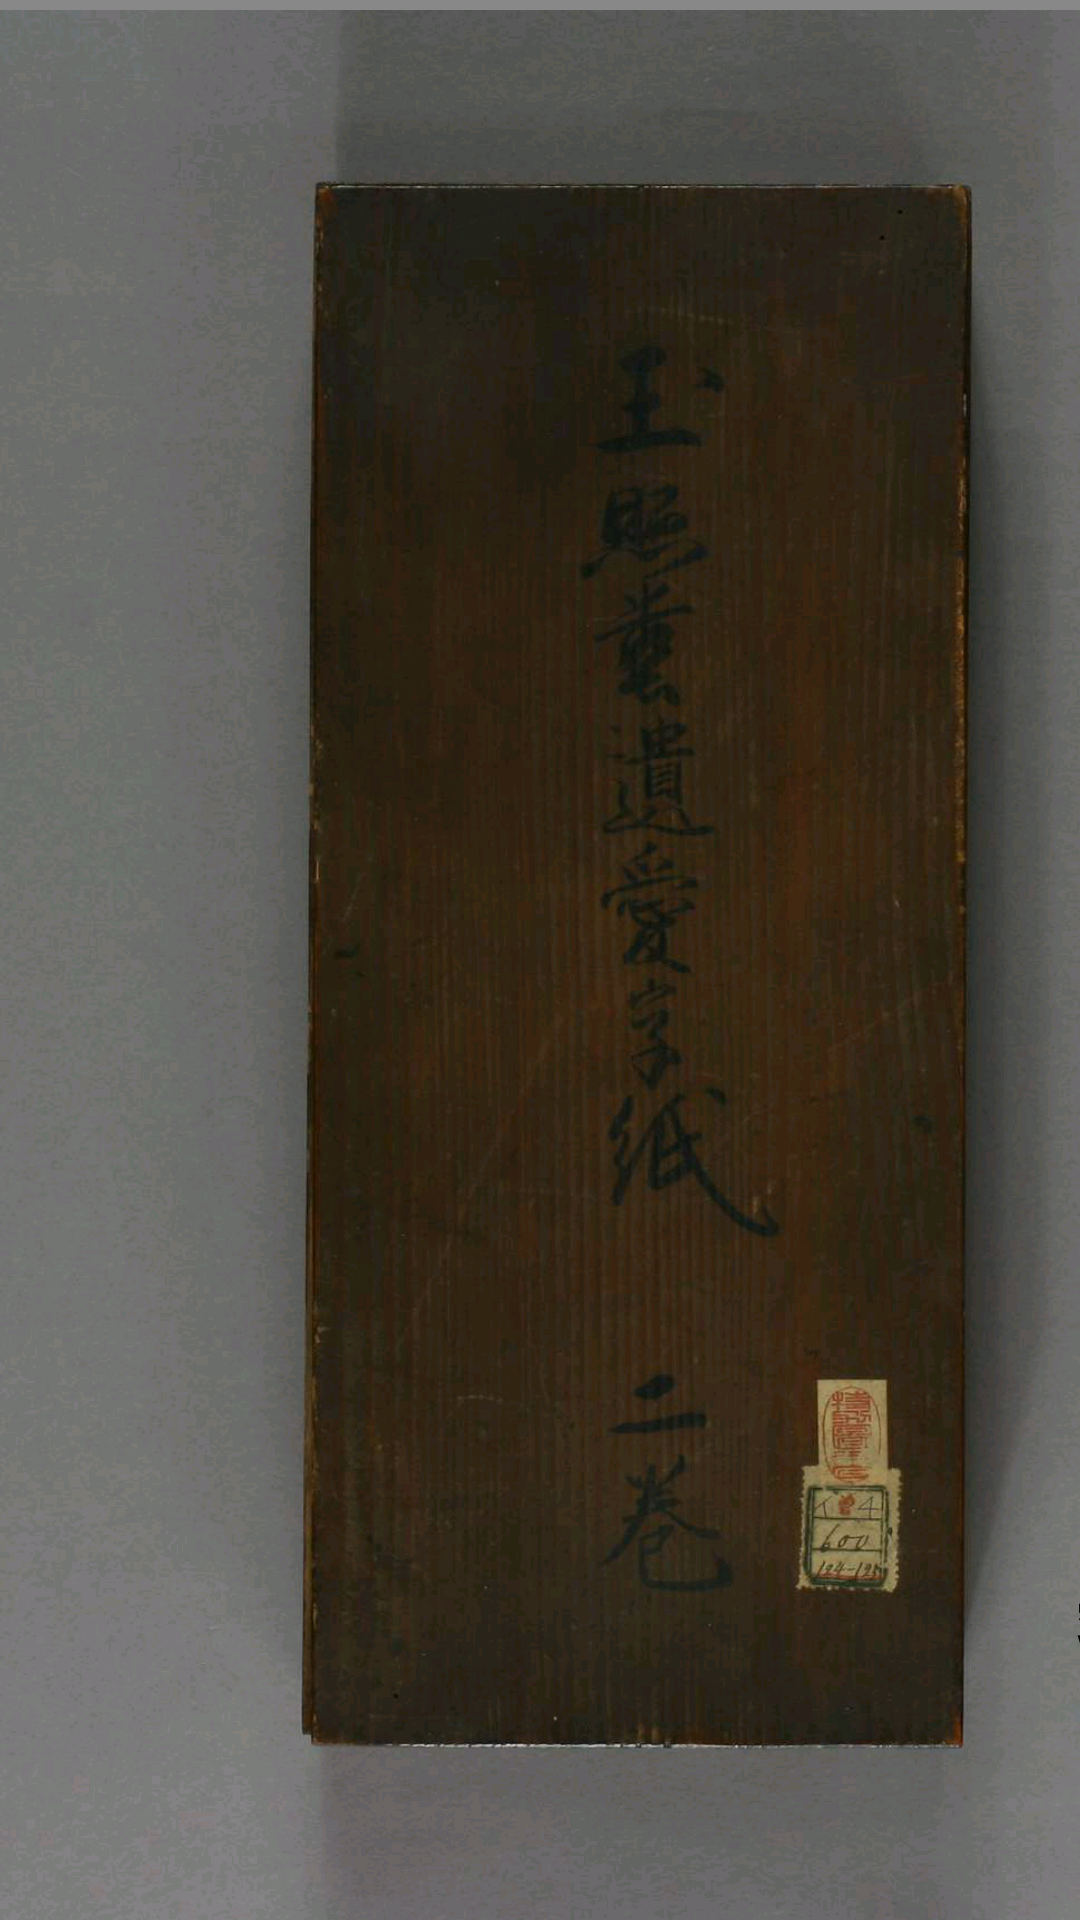 玉照薫遺愛字紙 二巻
イ 4
600
124-125